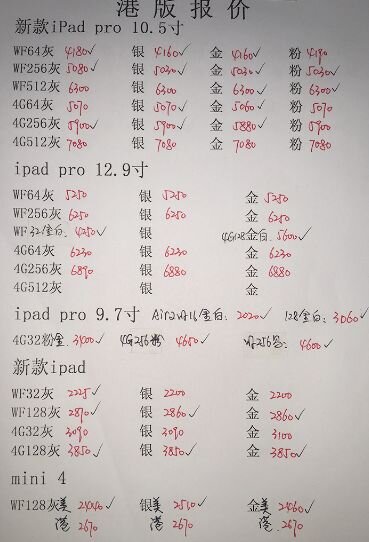 港版报价
新款iPad pro 10.5寸
WF64灰 4180✓ 银 4160✓ 金 4160✓ 粉 4190
WF256灰 5080✓ 银 5030✓ 金 5030✓ 粉 5030✓
WF512灰 6300 银 6300✓ 金 6300✓ 粉 6300✓
4G64灰 5070 银 5070✓ 金 5060✓ 粉 5070
4G256灰 5900✓ 银 5900✓ 金 5880✓ 粉 5900
4G512灰 7080 银 7080 金 7080 粉 7080
ipad pro 12.9寸
WF64灰 5250 银 5250 金 5250
WF256灰 6250 银 6250 金 6250
WF32金白: 4250✓ 银 4G128金白: 5600✓
4G64灰 6230 银 6230 金 6230
4G256灰 6890 银 6880 金 6880
4G512灰 银 金
ipad pro 9.7寸 Air2 wif16金白: 2020✓ 128金白: 3060✓
4G32粉金 3400✓ 4G256粉 4650✓ 256 4600✓
新款ipad
WF32灰 2225✓ 银 2200 金 2200
WF128灰 2870✓ 银 2860✓ 金 2860✓
4G32灰 3090 银 3090 金 3100
4G128灰 3850✓ 银 3850✓ 金 3850✓
mini 4
WF128灰美 2440✓ 银美 2510✓ 金美 2460✓
港 2670 港 2670 港 2670